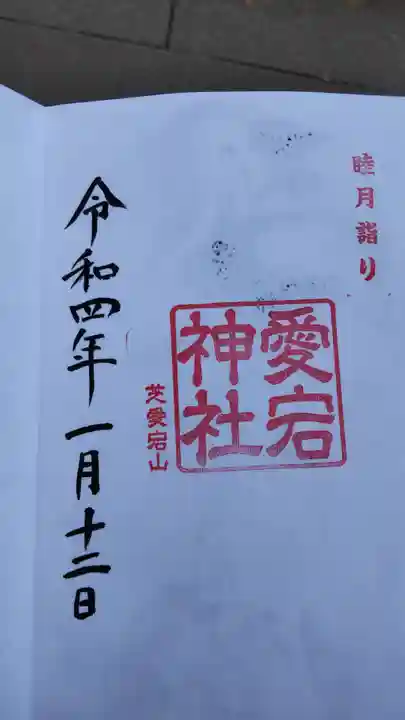 睦月詣り
愛宕
神社
芝愛宕山
令和四年一月十二日